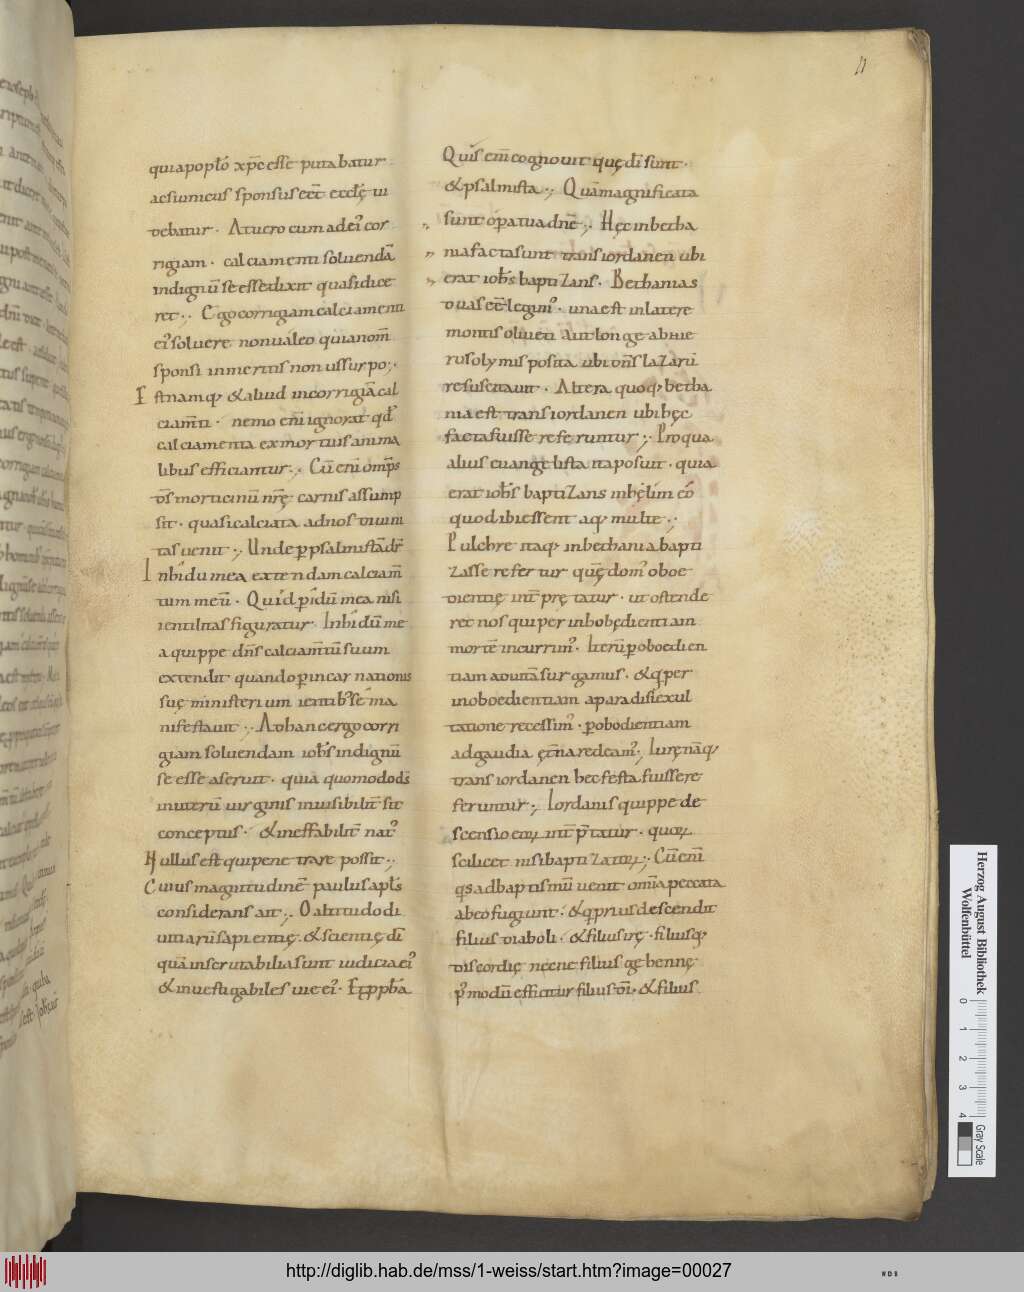 11
quia popło xpc esse putabatur
ac si unicus sponsus eēt ecclę ui
debatur · At uero cum ad ei cor
rigiam · calciamenti soluendā
indignū se esse dixit quasi dicer
ret ·, Ego corrigiam calciamenti
ei soluere non ualeo quia nom̄
sponsi inmeritus non ussurpo ·,
Est namq; & aliud in corrigiā cal
ciam̄ti · nemo eni ignorat qđ
calciamenta ex mortuis anima
libus efficiantur ·, Cū eni omps
ds morticinū nrę carnis assump
sit · quasi calciata ad nos diuini
tas uenit ·, Unde p psalmistā dr̄
In bidumea extendam calciam̄
tum meū · Quid p idūmea nisi
ientilitas figuratur · In bidūme
a quippe dn̄s calciam̄tū suum
extendit quando p incarnationis
suę ministerium ientibꝰ se ma
nifestauit ·, Ad hanc ergo corri
giam soluendam iohs indignū
se esse aseruit · quia quomodo ds̄
in uterū uirginis inuisibilit̄ sit
conceptus · & ineffabilit̄ natꝰ
Nullus est qui pene trare possit ·,
Cuius magnitudinē paulus aptś
considerans ait ·, O altitudo di
uitiarū sapientię · & scientię dī
quā inscrutabilia sunt iudicia eiꝰ
& inuestigabiles uie eiꝰ ·
Quis eni cognouit quę dī sunt ·
& psalmista ·, Quā magnificata
sunt opa tua dnē ·, Hęc in betha
nia facta sunt trans iordanen ubi
erat iohs baptizans · Bethanias
duas eē legimꝰ · una est in latere
montis oliueti aut longe ab hie
rusolymis posita ubi dns lazarū
resuscitauit · Altera quoq; betha
nia est trans iordanen ubi hęc
facta fuisse referuntur ·, Pro qua
alius euangelista ita posuit · quia
erat iohs baptizans in
quod ibi essent aquę multe ·,
Pulchre itaq; in bethania bapti
zasse refertur quę domꝰ oboe
dientię int̄prętatur · ut ostende
ret nos qui per inhobędientiam
mortē incurrimꝰ · Iterū p oboedien
tiam ad uitā surgamus · & q per
inoboedientiam a paradisi exul
tatione recessimꝰ · p obodientiam
ad gaudia ęt̄na redeamꝰ ·, Iure namq;
trans iordanen hec festa fuisse re
feruntur ·, Iordanis quippe de
scensio eoꝝ int̄p̄tatur · quoꝝ
scilicet nisi baptizatoꝝ ·, Cū eni
qs ad baptismū uenit omīa peccata
ab eo fugiunt · & q prius descendit
filius diaboli · & filius irę · filiusq;
discordię necne filius gehennę
p̄modū efficitur filius di · & filius
Herzog August Bibliothek
Wolfenbüttel
0 1 2 3 4
Gray Scale
http://diglib.hab.de/mss/1-weiss/start.htm?image=00027